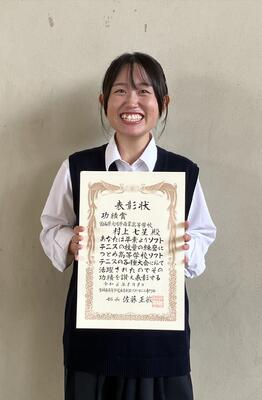 表彰状
功績賞
商業高等学校
村上 七星 殿
あなたは平素よりソフト
テニスの技量の練磨に
つとめ高等学校ソフト
テニスの各種大会において
活躍されたのでその
功績を讃え表彰する
佐藤 正